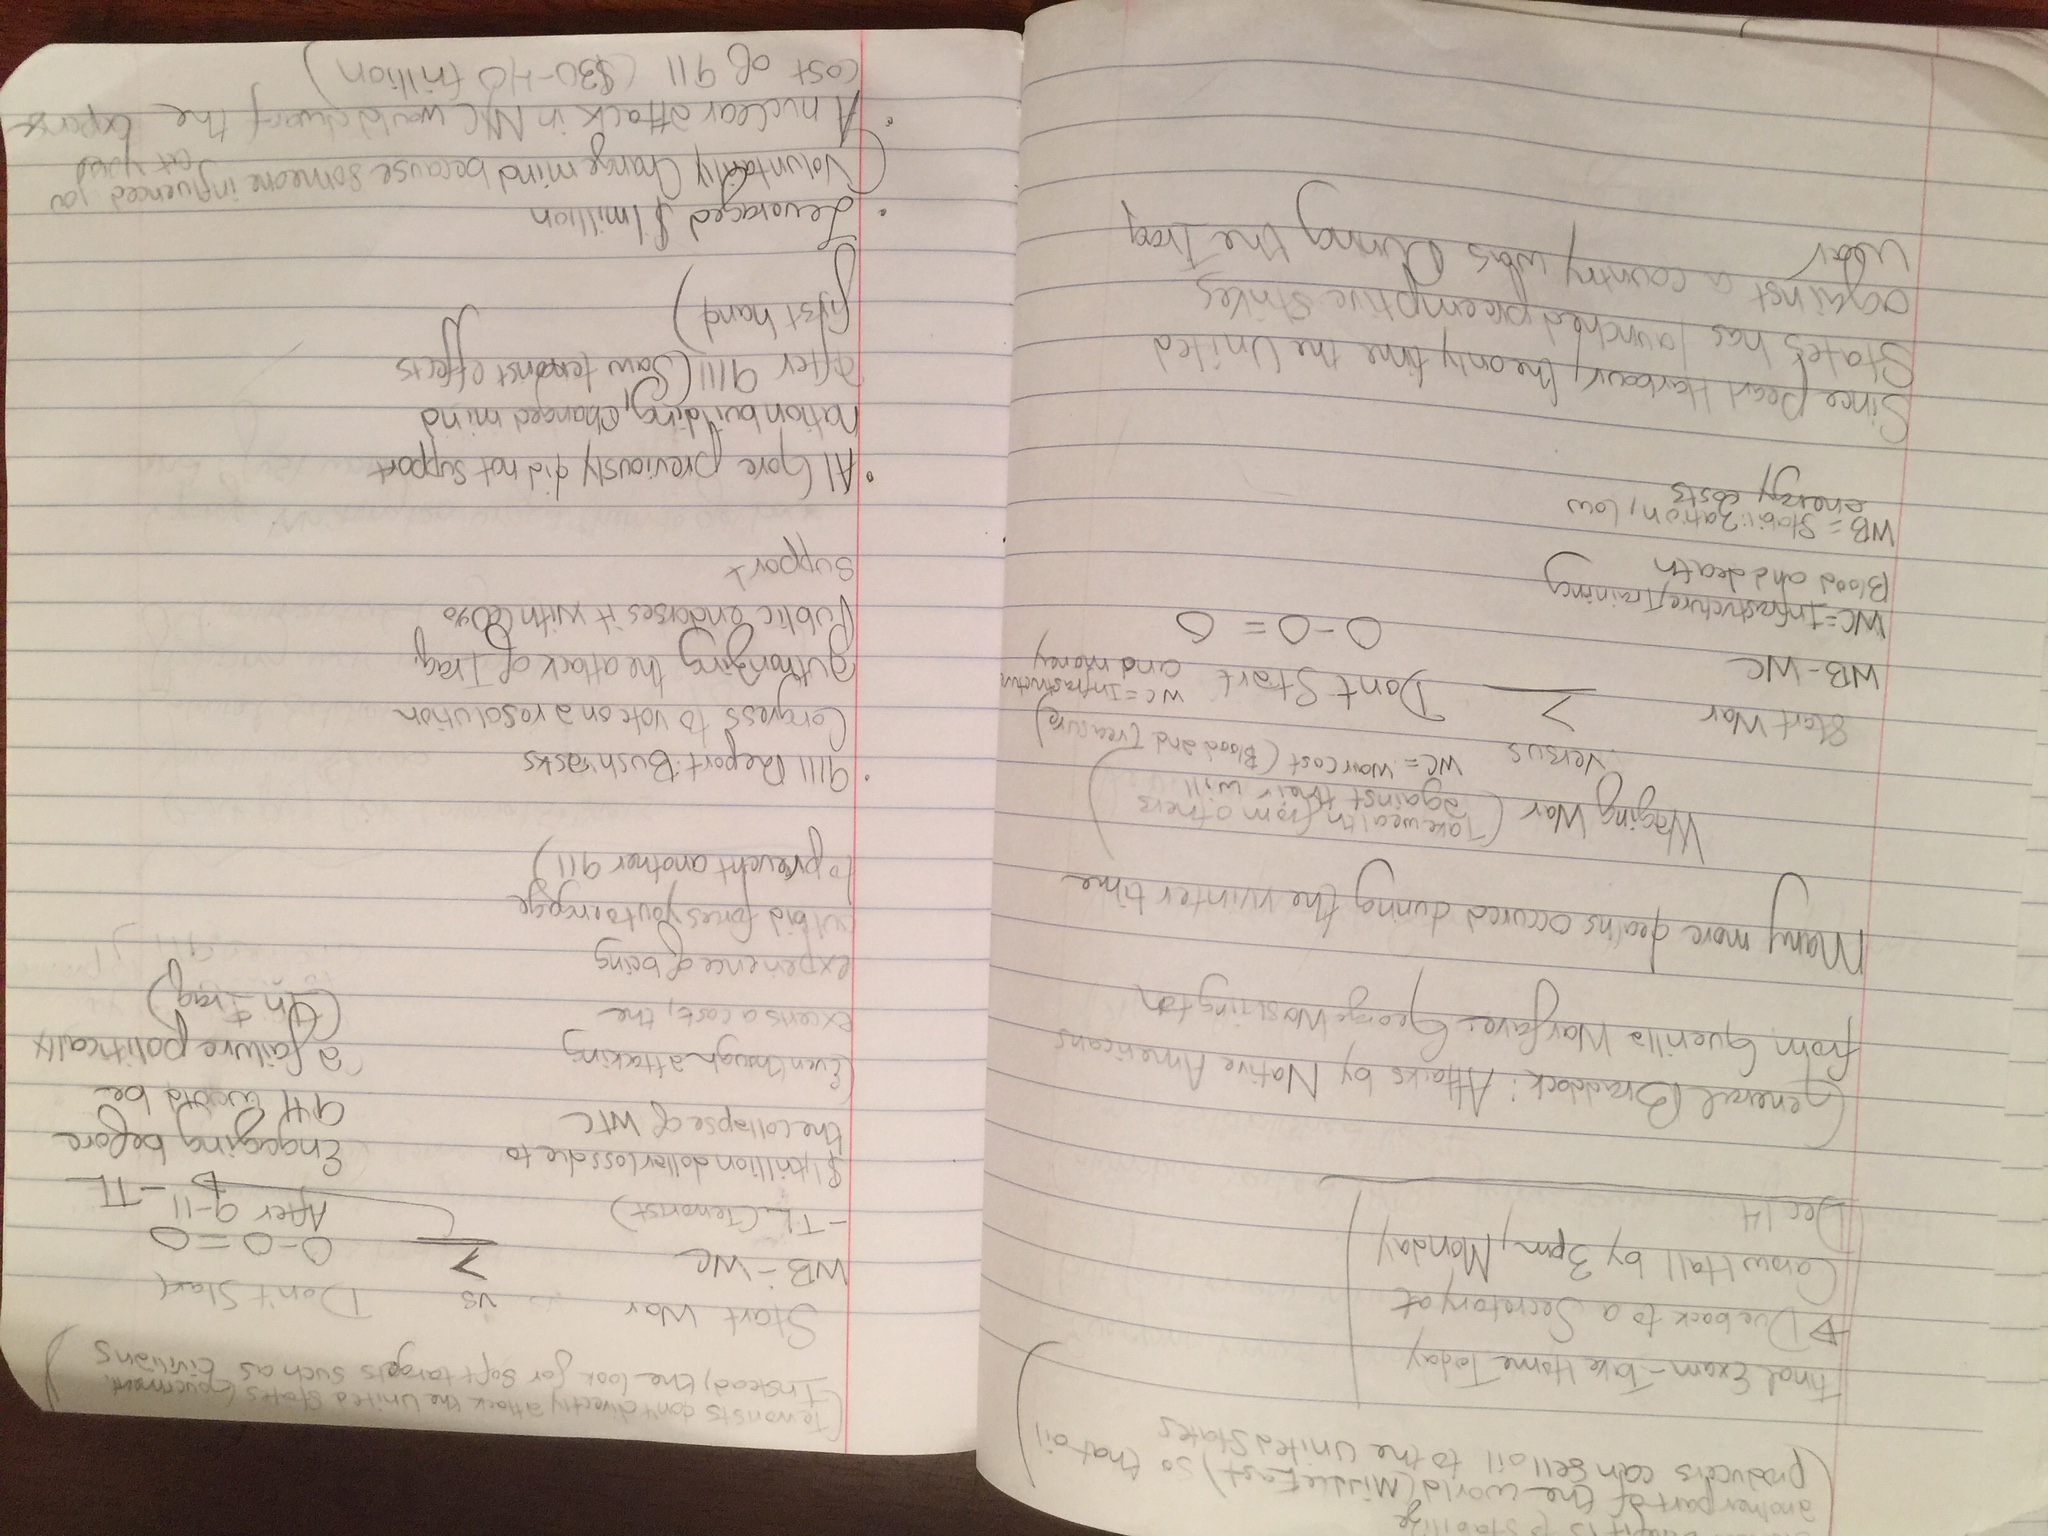 benefit is to stabilize
another part of the world (Middle East) so that oil
producers can sell oil to the United States)
Final Exam - Take Home Today
Due back to a Secretary at
Carow Hall by 3pm, Monday
Dec 14
General Braddock: Attacks by Native Americans
from Guerilla Warfare. George Washington
Many more deaths occured during the winter time
Waging War (Take wealth from others
against their will)
versus WC = war cost (Blood and Treasure)
Start War > Dont Start WC = Infrastructure
and money
WB-WC 0-0=0
WC=Infrastructure/Training
Blood and death
WB = Stabilization, low
energy costs
Since Pearl Harbour, the only time the United
States has launched preemptive strikes
against a country was during the Iraq
War
(Terrorists don't directly attack the United States Government.
Instead, the look for soft targets such as civilians)
Start War vs Don't Start
WB-WC > 0-0=0
-TL (Terrorist) After 9-11 -TL
$1 trillion dollar loss due to Engaging before
the collapse of WTC 911 would be
(Even though attacking a failure politically
excerts a cost, the (In Iraq)
experience of being
forces you to engage
to prevent another 911)
• 9111 Report: Bush asks
Congress to vote on a resolution
authorizing the attack of Iraq.
Public endorses it with 60%
support
• Al Gore previously did not support
nation building, changed mind
after 9111 (Saw terrorist effects
first hand)
• Leveraged $1 million
(Voluntarily change mind because someone influenced you
• A nuclear attack in NYC would dwarf the expense
cost of 911 ($30-40 trillion)